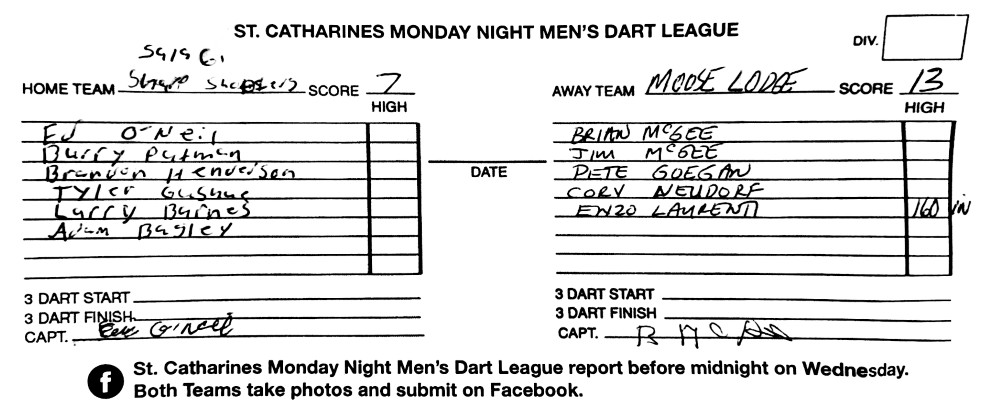 ST. CATHARINES MONDAY NIGHT MEN'S DART LEAGUE
DIV.
HOME TEAM SCORE 7
HIGH
AWAY TEAM MOOSE LODGE SCORE 13
HIGH
ED O'Neil
Barry Putman
Brandon Henderson
Tyler Gushue
Larry Barnes
Adam Bagley
DATE
BRIAN McGEE
JIM McGEE
PETE GOEGAN
CORY NEUDORF
ENZO LAURENTI 160 IN
3 DART START
3 DART FINISH
CAPT.
3 DART START
3 DART FINISH
CAPT.
St. Catharines Monday Night Men's Dart League report before midnight on Wednesday.
Both Teams take photos and submit on Facebook.